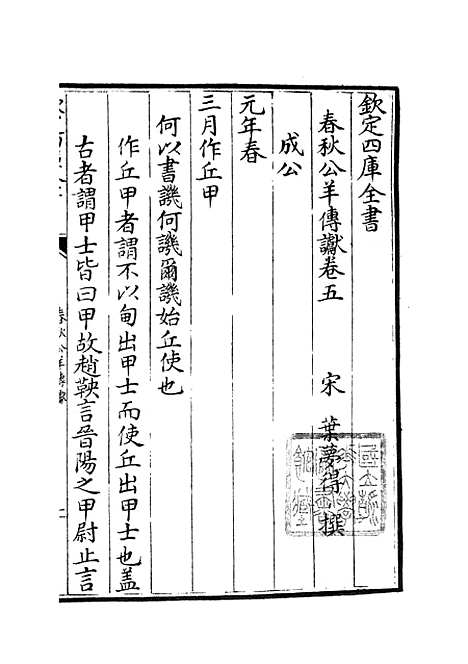 欽定四庫全書
春秋公羊傳讞卷五　宋　葉夢得　撰
成公
元年春
三月作丘甲
何以書譏何譏爾譏始丘使也
作丘甲者謂不以甸出甲士而使丘出甲士也盖
古者謂甲士皆曰甲故趙鞅言晉陽之甲尉止言
春秋公羊傳讞